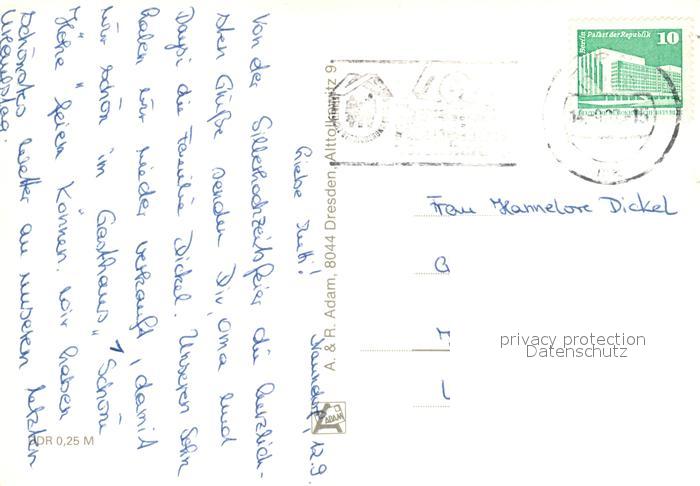 Naundorf, 12.9.
Liebe Mutti!
Von der Silberhochzeitsfeier die herzlich-
sten Grüße senden Dir, Oma und
Daysi die Familie Dickel. Unseren Sohn
haben wir wieder verkauft, damit
wir schön im Gasthaus "Schöne
Höhe" feiern können. Wir haben
schönstes Wetter an unserem letzten
Urlaubstag.
A. & R. Adam, 8044 Dresden, Alttolkewitz 9
ADAM
DDR 0,25 M
Berlin Palast der Republik
10
Frau Hannelore Dickel
privacy protection
Datenschutz